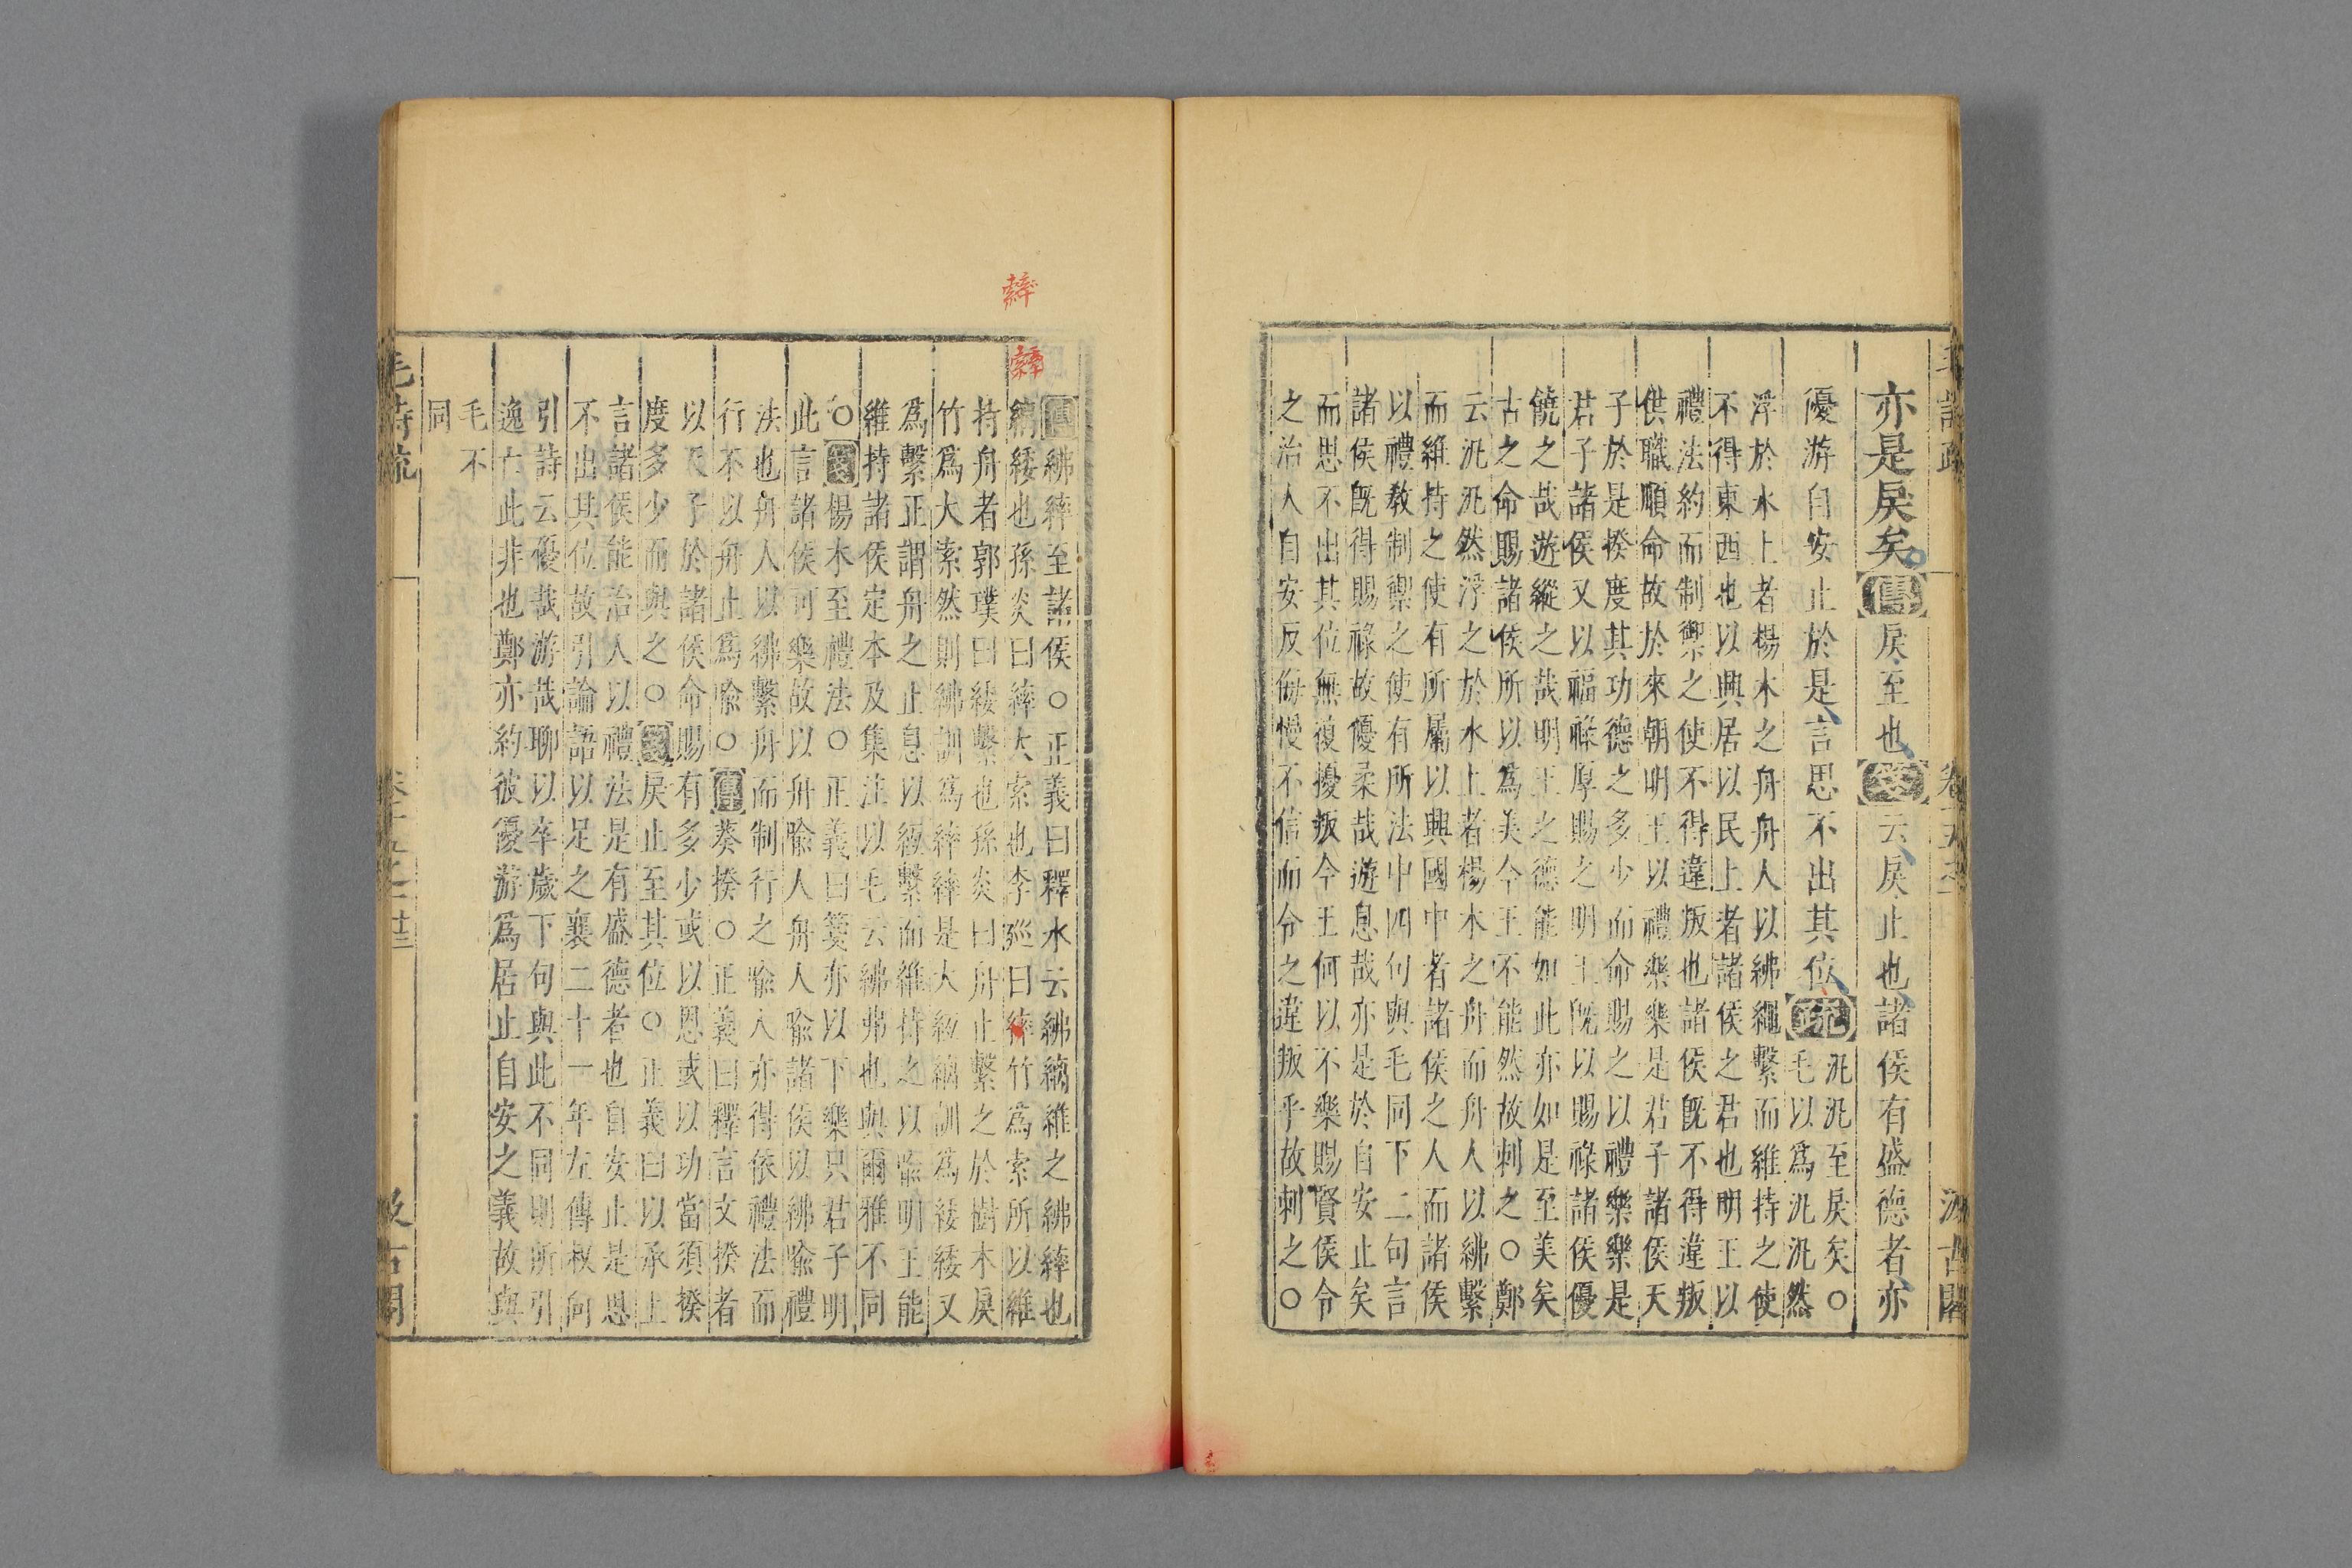 亦是戾矣○傳戾至也箋云戾止也諸侯有盛德者亦
優游自安止於是言思不出其位疏
汎汎至戾矣○
毛以為汎汎然
浮於水上者楊木之舟舟人以紼繩繫而維持之使
不得東西也以興居以民上者諸侯之君也明王以
禮法約而制禦之使不得違叛也諸侯既不得違叛
供職順命故於來朝明王以禮樂樂是君子諸侯天
子於是揆度其功德之多少而命賜之以禮樂樂是
君子諸侯又以福祿厚賜之明王既以賜祿諸侯優
饒之哉遊縱之哉明王之德能如此亦如是至美矣
古之命賜諸侯所以為美今王不能然故刺之○鄭
云汎汎然浮之於水上者楊木之舟而舟人以紼繫
而維持之使有所屬以興國中者諸侯之人而諸侯
以禮教制禦之使有所法中四句與毛同下二句言
諸侯既得賜祿故優柔哉遊息哉亦是於自安止矣
而思不出其位無復擾叛今王何以不樂賜賢侯令
之治人自安反侮慢不信而令之違叛乎故刺之○
傳紼繂至諸侯○正義曰釋水云紼縭維之紼繂也
縭緌也孫炎曰繂大索也李巡曰繂竹為索所以維
持舟者郭璞曰緌繫也孫炎曰舟止繫之於樹木戾
竹為大索然則紼訓為繂繂是大絚縭訓為緌緌又
為繫正謂舟之止息以絚繫而維持之以喻明王能
維持諸侯定本及集注以毛云紼弗也與爾雅不同
○箋楊木至禮法○正義曰箋亦以下樂只君子明
此言諸侯可樂故以舟喻人舟人喻諸侯以紼喻禮
法也舟人以紼繫舟而制行之喻人亦得依禮法而
行不以舟止為喻○傳葵揆○正義曰釋言文揆者
以天子於諸侯命賜有多少或以恩或以功當須揆
度多少而與之○箋戾止至其位○正義曰以承上
言諸侯能治人以禮法是有盛德者也自安止是思
不出其位故引論語以足之襄二十一年左傳叔向
引詩云優哉游哉聊以卒歲下句與此不同則所引
逸亡此非也鄭亦約彼優游為居止自安之義故與
毛不
同
毛詩疏
汲古閣
繂
繂